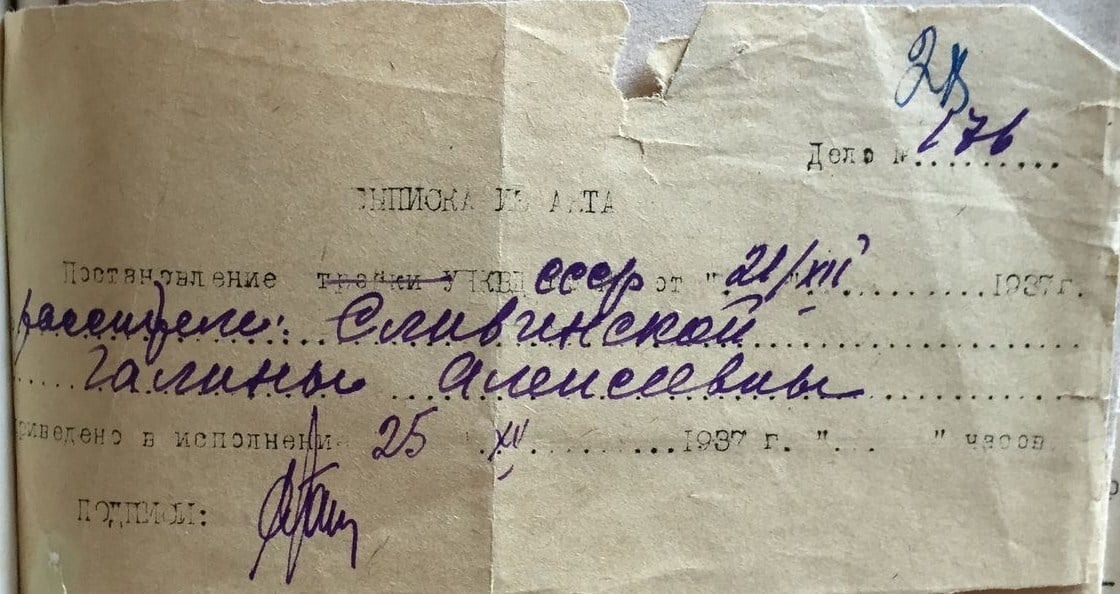 28
Дело № 176
ВЫПИСКА ИЗ АКТА
Постановление тройки УНКВД СССР от "21/XII" 1937 г.
расстреле: Сливинской
Галины Алексеевны
приведено в исполнени 25 XII 1937 г. " " часов
ПОДПИСИ: